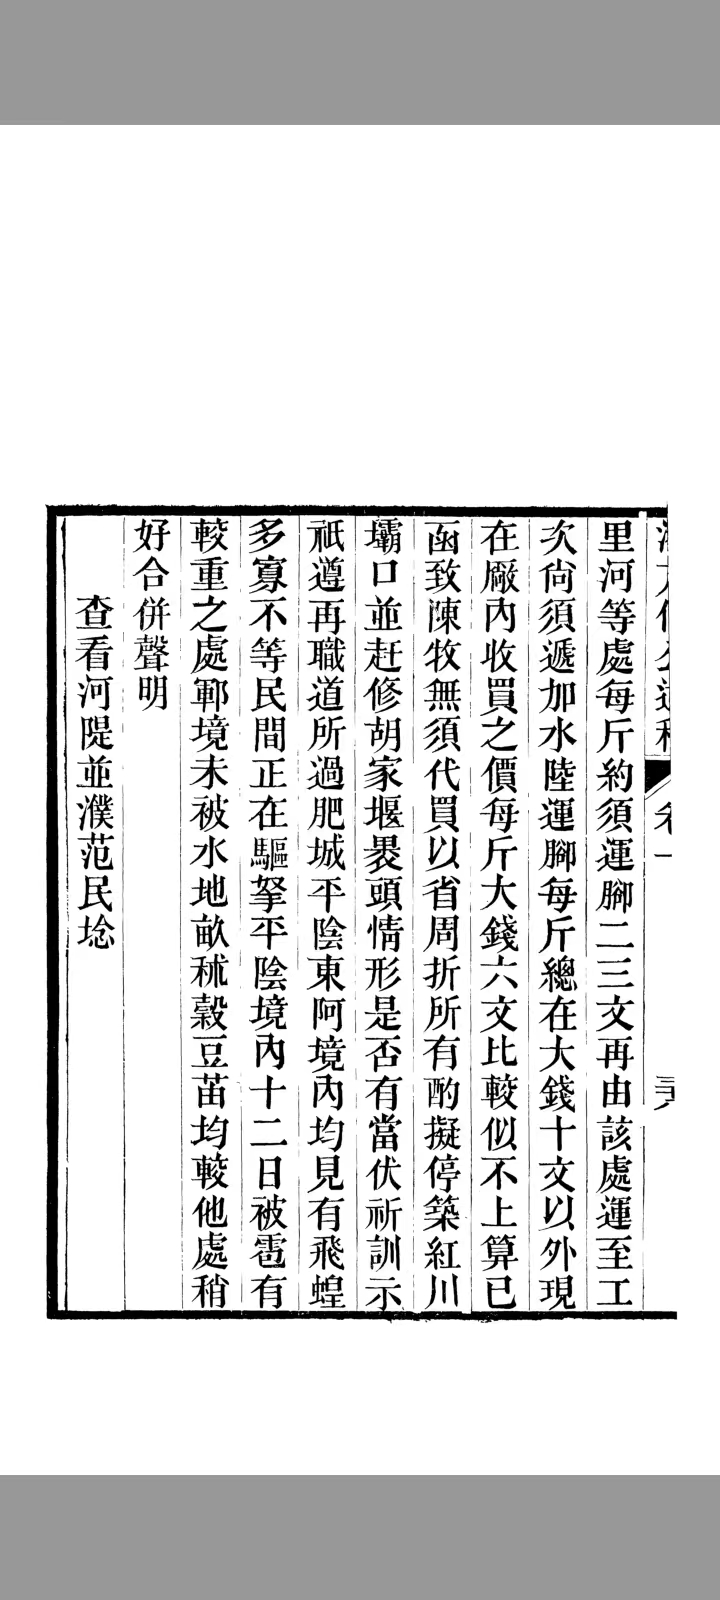 卷一
里河等處每斤約須運腳二三文再由該處運至工
次尙須遞加水陸運腳每斤總在大錢十文以外現
在厰內收買之價每斤大錢六文比較似不上算已
函致陳牧無須代買以省周折所有酌擬停築紅川
壩口並赶修胡家堰褁頭情形是否有當伏祈訓示
祇遵再職道所過肥城平陰東阿境內均見有飛蝗
多寡不等民間正在驅拏平陰境內十二日被雹有
較重之處鄆境未被水地畝秫穀豆苗均較他處稍
好合併聲明
查看河隄並濮范民埝